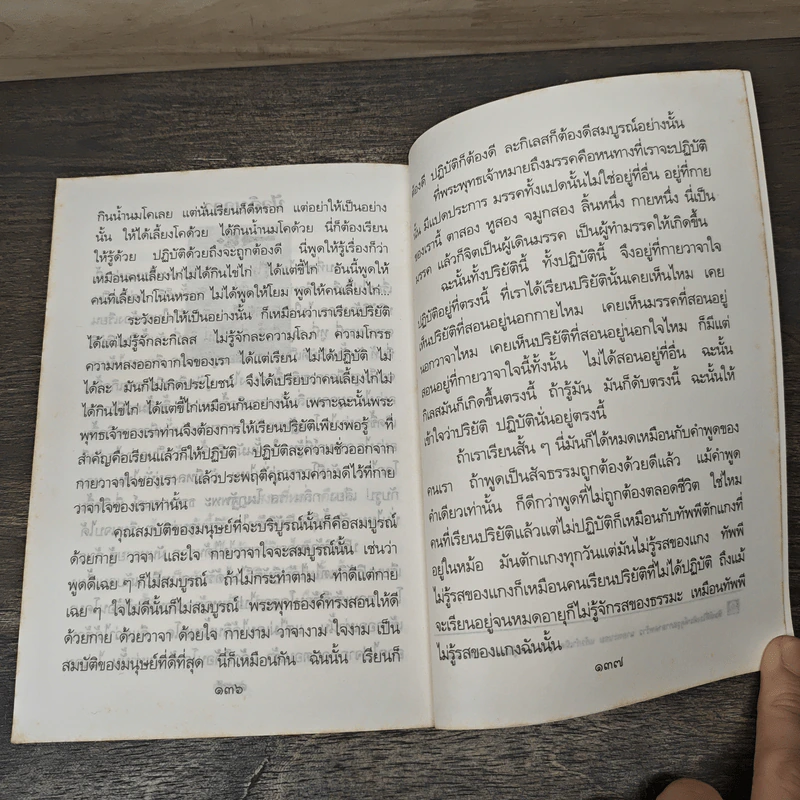 กินน้ำนมโคเลย แต่นั่นเรียนก็ดีหรอก แต่อย่าให้เป็นอย่าง
นั้น ให้ได้เลี้ยงโคด้วย ได้กินน้ำนมโคด้วย นี่ก็ต้องเรียน
ให้รู้ด้วย ปฏิบัติด้วยถึงจะถูกต้องดี นี่พูดให้รู้เรื่องก็ว่า
เหมือนคนเลี้ยงไก่ไม่ได้กินไข่ไก่ ได้แต่ขี้ไก่ อันนี้พูดให้
คนที่เลี้ยงไก่โน่นหรอก ไม่ได้พูดให้โยม พูดให้คนเลี้ยงไก่...
ระวังอย่าให้เป็นอย่างนั้น ก็เหมือนว่าเราเรียนปริยัติ
ได้แต่ไม่รู้จักละกิเลส ไม่รู้จักละความโลภ ความโกรธ
ความหลงออกจากใจของเรา ได้แต่เรียน ไม่ได้ปฏิบัติ ไม่
ได้ละ มันก็ไม่เกิดประโยชน์ จึงได้เปรียบว่าคนเลี้ยงไก่ไม่
ได้กินไข่ไก่ ได้แต่ขี้ไก่เหมือนกันอย่างนั้น เพราะฉะนั้นพระ
พุทธเจ้าของเราท่านจึงต้องการให้เรียนปริยัติเพียงพอรู้ ที่
สำคัญคือเรียนแล้วก็ให้ปฏิบัติ ปฏิบัติละความชั่วออกจาก
กายวาจาใจของเรา แล้วประพฤติคุณงามความดีไว้ที่กาย
วาจาใจของเราเท่านั้น
คุณสมบัติของมนุษย์ที่จะบริบูรณ์นั้นก็คือสมบูรณ์
ด้วยกาย วาจา และใจ กายวาจาใจจะสมบูรณ์นั้น เช่นว่า
พูดดีเฉย ๆ ก็ไม่สมบูรณ์ ถ้าไม่กระทำตาม ทำดีแต่กาย
เฉย ๆ ใจไม่ดีนั้นก็ไม่สมบูรณ์ พระพุทธองค์ทรงสอนให้ดี
ด้วยกาย ด้วยวาจา ด้วยใจ กายงาม วาจางาม ใจงาม เป็น
สมบัติของมนุษย์ที่ดีที่สุด นี่ก็เหมือนกัน ฉันนั้น เรียนก็
๑๓๖
ต้องดี ปฏิบัติก็ต้องดี ละกิเลสก็ต้องดีสมบูรณ์อย่างนั้น
ที่พระพุทธเจ้าหมายถึงมรรคคือหนทางที่เราจะปฏิบัติ
นั้น มีแปดประการ มรรคทั้งแปดนั้นไม่ใช่อยู่ที่อื่น อยู่ที่กาย
ของเรานี้ ตาสอง หูสอง จมูกสอง ลิ้นหนึ่ง กายหนึ่ง นี่เป็น
มรรค แล้วก็จิตเป็นผู้เดินมรรค เป็นผู้ทำมรรคให้เกิดขึ้น
ฉะนั้นทั้งปริยัตินี้ ทั้งปฏิบัตินี้ จึงอยู่ที่กายวาจาใจ
ปฏิบัติอยู่ที่ตรงนี้ ที่เราได้เรียนปริยัตินั้นเคยเห็นไหม เคย
เห็นปริยัติที่สอนอยู่นอกกายไหม เคยเห็นมรรคที่สอนอยู่
นอกวาจาไหม เคยเห็นปริยัติที่สอนอยู่นอกใจไหม ก็มีแต่
สอนอยู่ที่กายวาจาใจนี้ทั้งนั้น ไม่ได้สอนอยู่ที่อื่น ฉะนั้น
กิเลสมันก็เกิดขึ้นตรงนี้ ถ้ารู้มัน มันก็ดับตรงนี้ ฉะนั้นให้
เข้าใจว่าปริยัติ ปฏิบัตินั่นอยู่ตรงนี้
ถ้าเราเรียนสั้น ๆ นี่มันก็ได้หมดเหมือนกับคำพูดของ
คนเรา ถ้าพูดเป็นสัจธรรมถูกต้องด้วยดีแล้ว แม้คำพูด
คำเดียวเท่านั้น ก็ดีกว่าพูดที่ไม่ถูกต้องตลอดชีวิต ใช่ไหม
คนที่เรียนปริยัติแล้วแต่ไม่ปฏิบัติก็เหมือนกับทัพพีตักแกงที่
อยู่ในหม้อ มันตักแกงทุกวันแต่มันไม่รู้รสของแกง ทัพพี
ไม่รู้รสของแกงก็เหมือนคนเรียนปริยัติที่ไม่ได้ปฏิบัติ ถึงแม้
จะเรียนอยู่จนหมดอายุก็ไม่รู้จักรสของธรรมะ เหมือนทัพพี
ไม่รู้รสของแกงฉันนั้น
๑๓๗